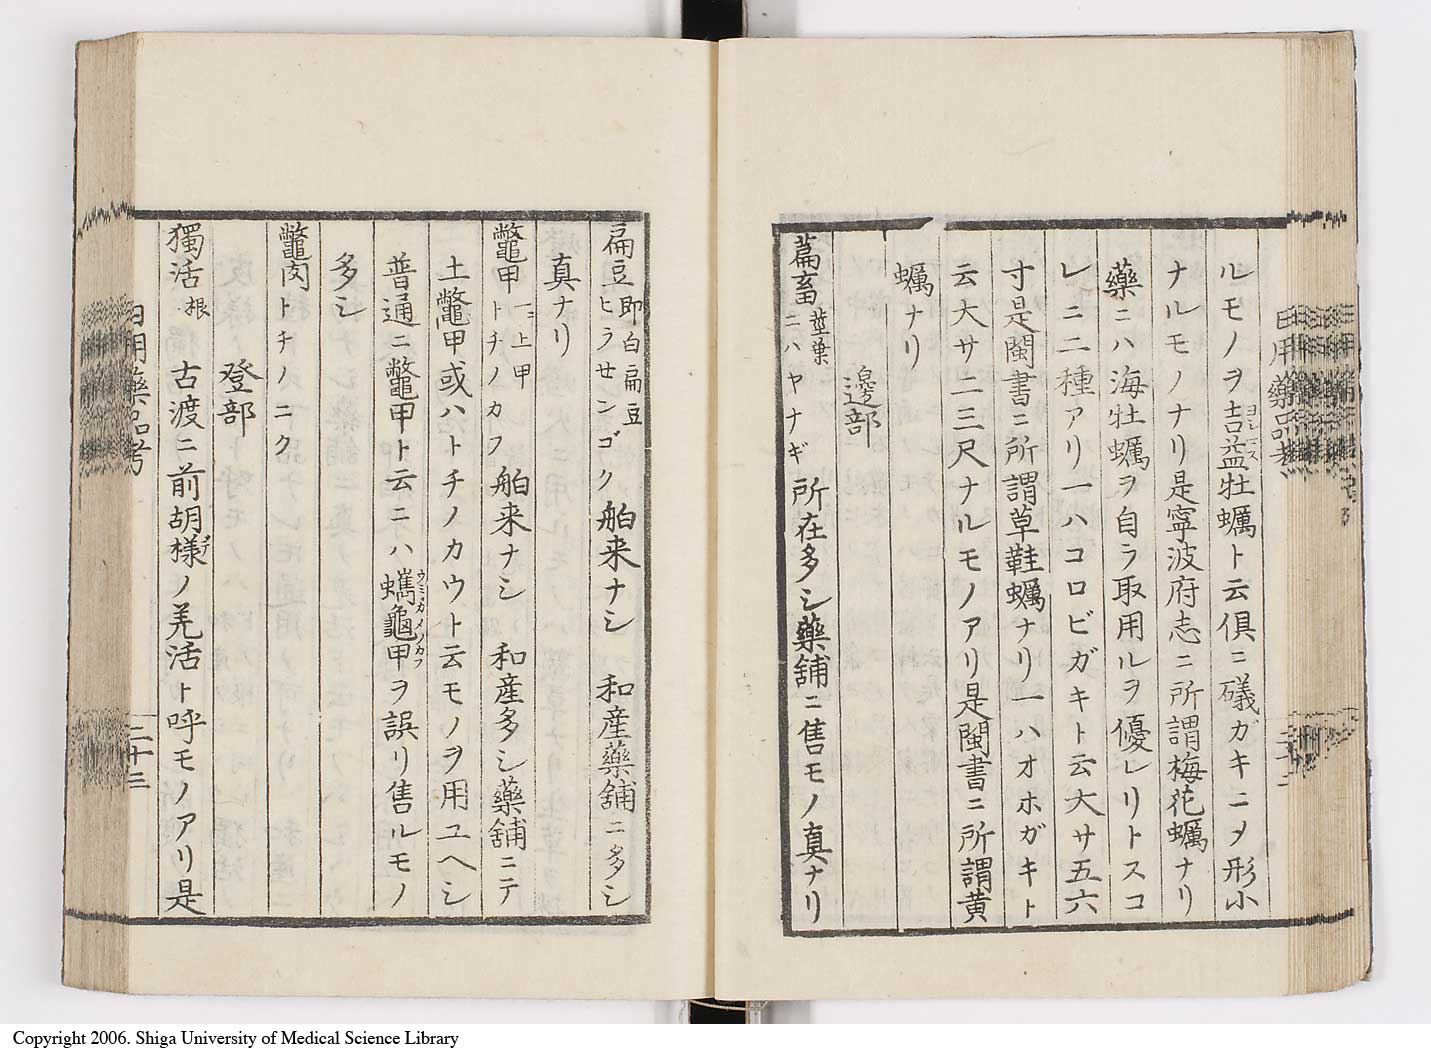 ルモノヲ吉益牡蠣ト云倶ニ礒ガキニヲ形小
ナルモノナリ是寧波府志ニ所謂梅花蠣ナリ
藥ニハ海牡蠣ヲ自ラ取用ルヲ優レリトスコ
レニ二種アリ一ハコロビガキト云大サ五六
寸是閩書ニ所謂草鞋蠣ナリ一ハオホガキト
云大サ二三尺ナルモノアリ是閩書ニ所謂黄
蠣ナリ
邊部
萹畜 莖葉 ニハヤナギ 所在多シ藥舗ニ售モノ真ナリ
扁豆 即白扁豆 ヒラセンゴク 舶来ナシ 和産藥舗ニ多シ
真ナリ
鼈甲 一ニ上甲 トチノカフ 舶来ナシ 和産多シ藥舗ニテ
土鼈甲或ハトチノカウト云モノヲ用ユヘシ
普通ニ鼈甲ト云ニハ蠵龜甲ヲ誤リ售ルモノ
多シ
鼈肉 トチノニク
登部
獨活 根 古渡ニ前胡樣ノ羌活ト呼モノアリ是
日用藥品考
二十三
Copyright 2006. Shiga University of Medical Science Library